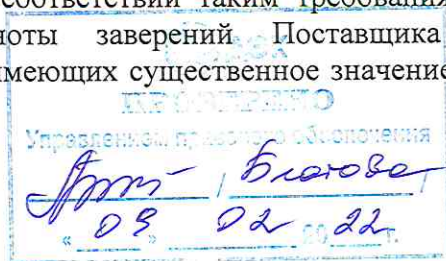 соответствии таким требования
ноты заверений Поставщика
имеющих существенное значение
Управлением правового обеспечения
/ Благова /
« 09 » 02 20 22 г.